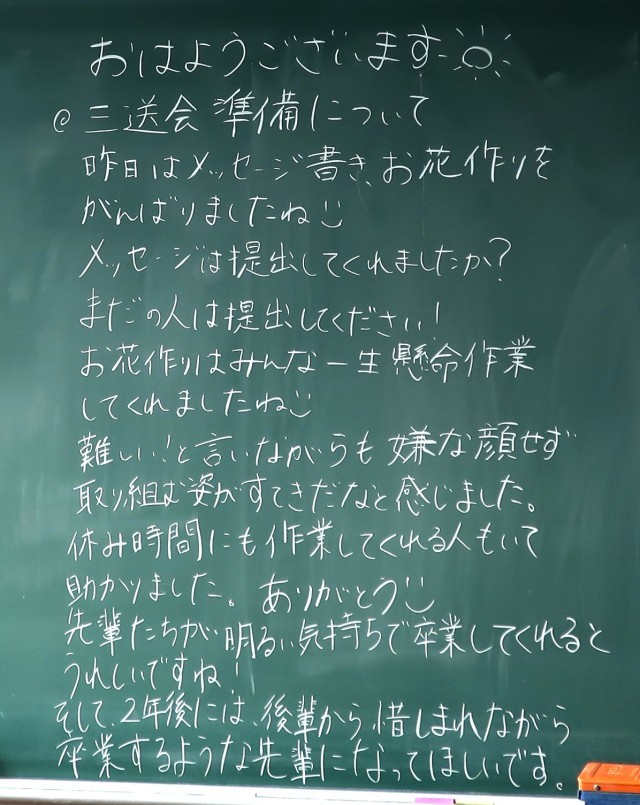 おはようございます
@ 三送会 準備について
昨日はメッセージ書き、お花作りを
がんばりましたね
メッセージは提出してくれましたか?
まだの人は提出してください!
お花作りはみんな一生懸命作業
してくれましたね
難しい!と言いながらも嫌な顔せず
取り組む姿がすてきだなと感じました。
休み時間にも作業してくれる人もいて
助かりました。ありがとう
先輩たちが明るい気持ちで卒業してくれると
うれしいですね!
そして、2年後には、後輩から惜しまれながら
卒業するような先輩になってほしいです。